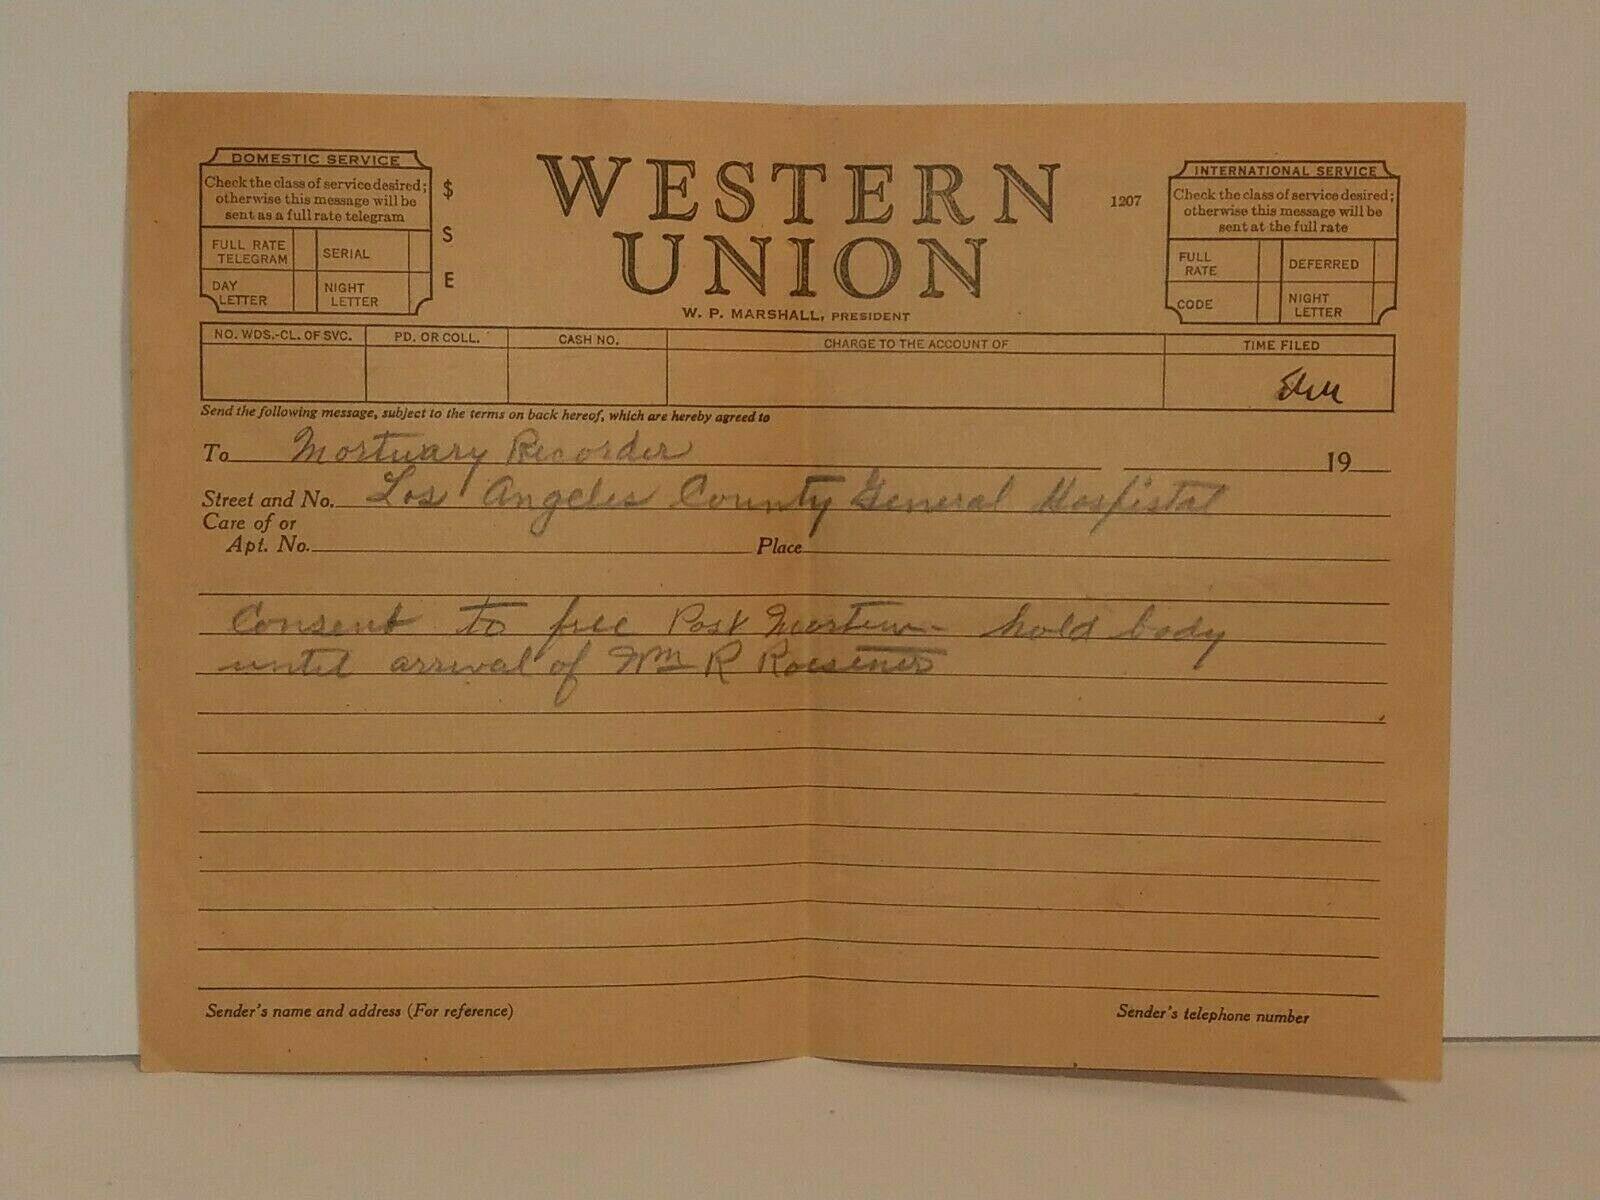 DOMESTIC SERVICE
Check the class of service desired;
otherwise this message will be
sent as a full rate telegram
FULL RATE
TELEGRAM
SERIAL
DAY
LETTER
NIGHT
LETTER
$
S
E
WESTERN
UNION
1207
W. P. MARSHALL, PRESIDENT
INTERNATIONAL SERVICE
Check the class of service desired;
otherwise this message will be
sent at the full rate
FULL
RATE
DEFERRED
CODE
NIGHT
LETTER
NO. WDS.-CL. OF SVC.
PD. OR COLL.
CASH NO.
CHARGE TO THE ACCOUNT OF
TIME FILED
Send the following message, subject to the terms on back hereof, which are hereby agreed to
To Mortuary Recorder 19
Street and No. Los Angeles County General Hospistal
Care of or
Apt. No. Place
Consent to free Post Mortem - hold body
until arrival of Wm R
Sender's name and address (For reference)
Sender's telephone number